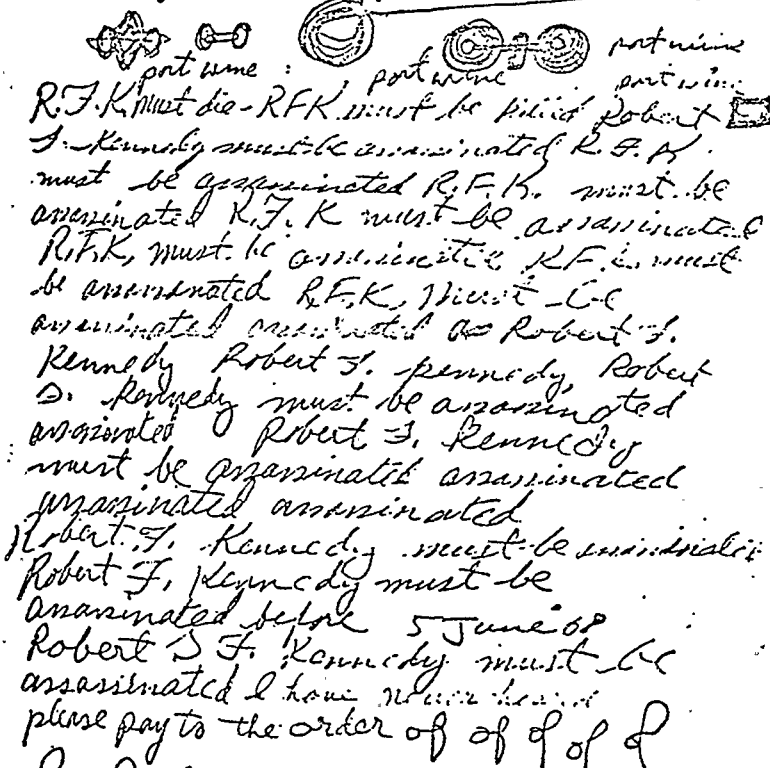 port wine
port wine : port wine port wine
R.F.K must die - RFK must be killed Robert
F. Kennedy must be assassinated R.F.K.
must be assassinated R.F.K. must be
assassinated R.F.K must be assassinated
R.F.K. must be assassinated R.F.K. must
be assassinated R.F.K. must be
assassinated assassinated Robert F.
Kennedy Robert F. Kennedy, Robert
F. Kennedy must be assassinated
assassinated Robert F. Kennedy
must be assassinated assassinated
assassinated assassinated
Robert F. Kennedy must be assassinated
Robert F. Kennedy must be
assassinated before 5 June 68
Robert F. Kennedy must be
assassinated I have never heard
please pay to the order of of of of of